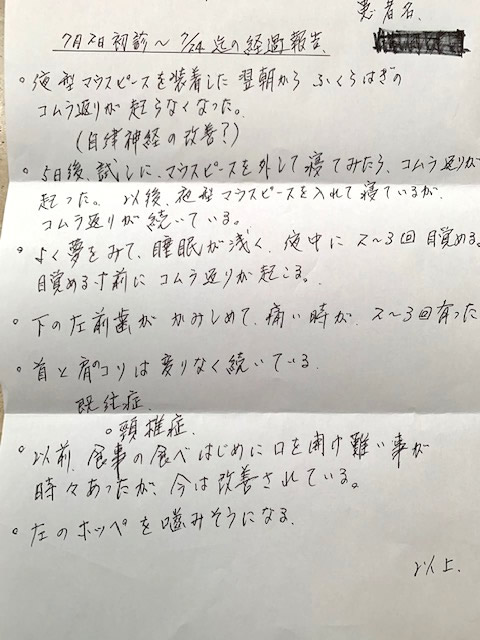 患者名
7月2日初診～7/24迄の経過報告
◦夜型マウスピースを装着した翌朝から ふくらはぎの
コムラ返りが起らなくなった。
(自律神経の改善?)
◦5日後、試しに、マウスピースを外して寝てみたら、コムラ返りが
起った。以後、夜型マウスピースを入れて寝ているが、
コムラ返りが続いている。
◦よく夢をみて、睡眠が浅く、夜中に2～3回目覚める。
目覚める寸前にコムラ返りが起こる。
◦下の左前歯が かみしめて、痛い時が、2～3回有った
◦首と肩のコリは変りなく続いている。
既往症
◦頸椎症
◦以前、食事の食べはじめに口を開け難い事が
時々あったが、今は改善されている。
◦左のホッペを噛みそうになる
以上.